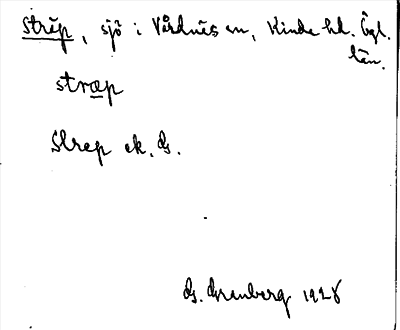 Strep, sjö i Vårdnäs sn, Kinda hd. Ögl.
län.
stræp
Strep ek. G.
G. Granberg 1928